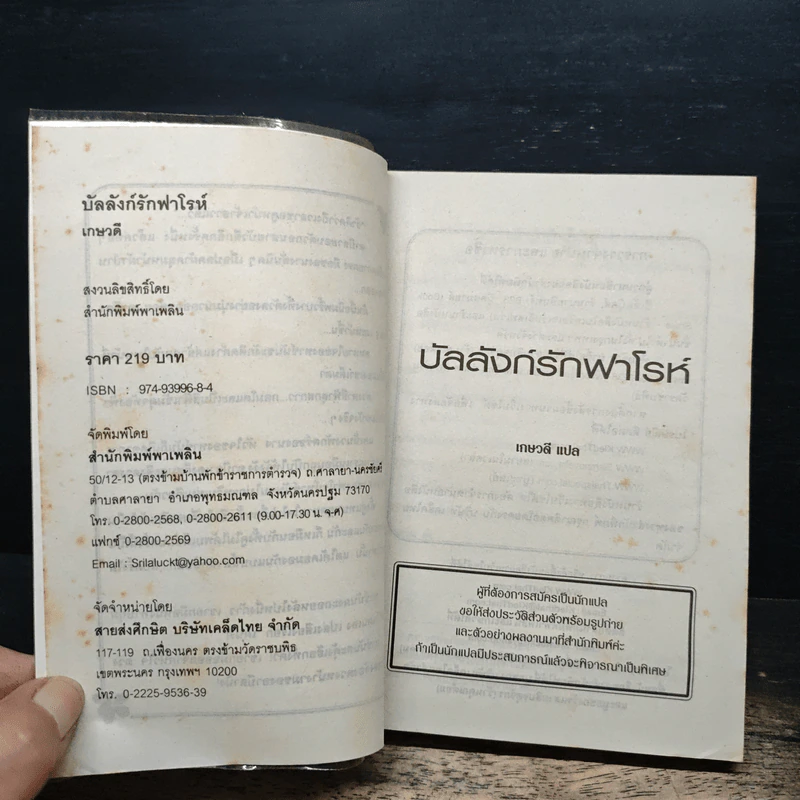 บัลลังก์รักฟาโรห์
เกษวดี
สงวนลิขสิทธิ์โดย
สำนักพิมพ์พาเพลิน
ราคา 219 บาท
ISBN : 974-93996-8-4
จัดพิมพ์โดย
สำนักพิมพ์พาเพลิน
50/12-13 (ตรงข้ามบ้านพักข้าราชการตำรวจ) ถ.ศาลายา-นครชัยศรี
ตำบลศาลายา อำเภอพุทธมณฑล จังหวัดนครปฐม 73170
โทร. 0-2800-2568, 0-2800-2611 (9.00-17.30 น. จ-ศ)
แฟกซ์ 0-2800-2569
Email : Srilaluckt@yahoo.com
จัดจำหน่ายโดย
สายส่งศึกษิต บริษัทเคล็ดไทย จำกัด
117-119 ถ.เฟื่องนคร ตรงข้ามวัดราชบพิธ
เขตพระนคร กรุงเทพฯ 10200
โทร. 0-2225-9536-39
บัลลังก์รักฟาโรห์
เกษวดี แปล
ผู้ที่ต้องการสมัครเป็นนักแปล
ขอให้ส่งประวัติส่วนตัวพร้อมรูปถ่าย
และตัวอย่างผลงานมาที่สำนักพิมพ์ค่ะ
ถ้าเป็นนักแปลมีประสบการณ์แล้วจะพิจารณาเป็นพิเศษ